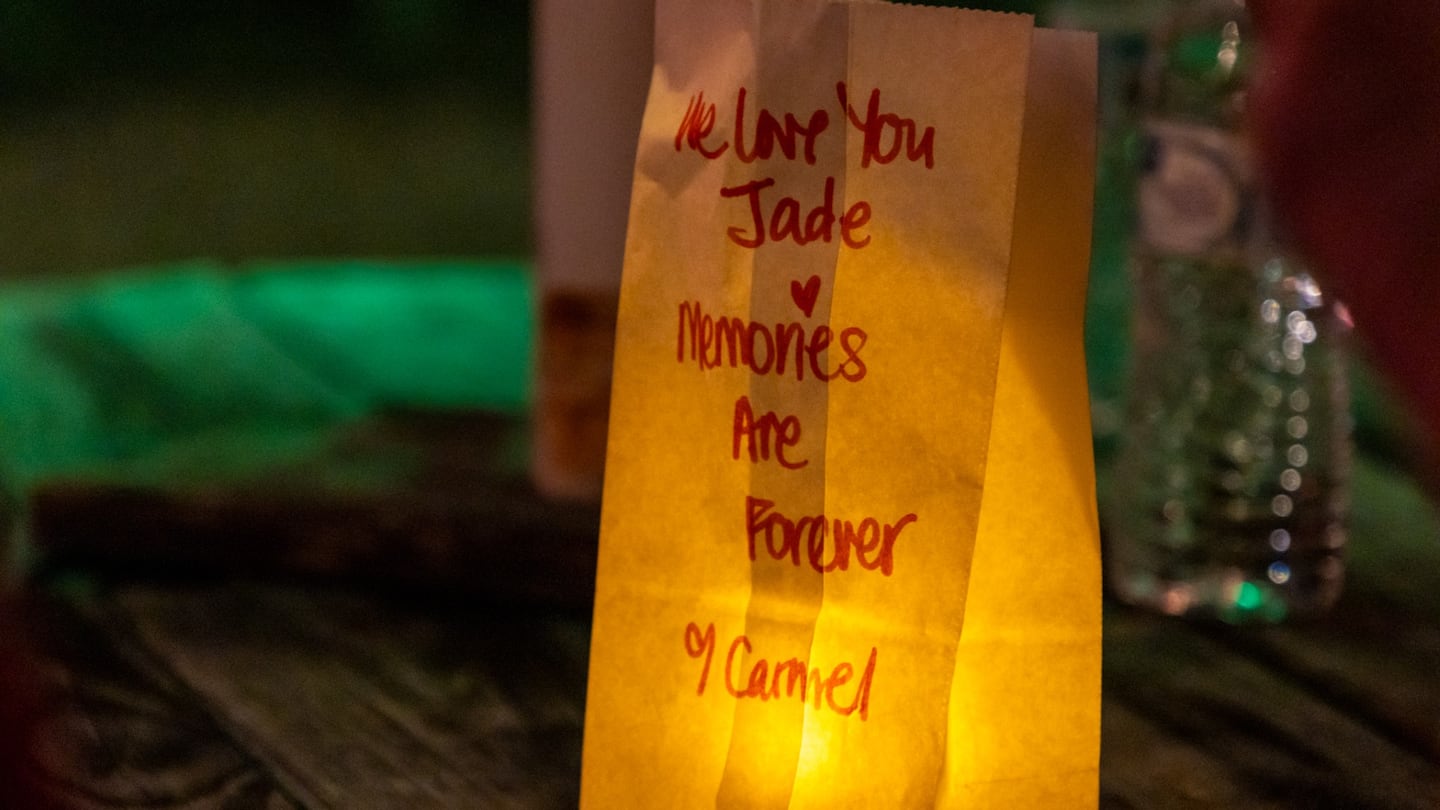 We love You
Jade
♥
Memories
Are
Forever
♡ Carmel